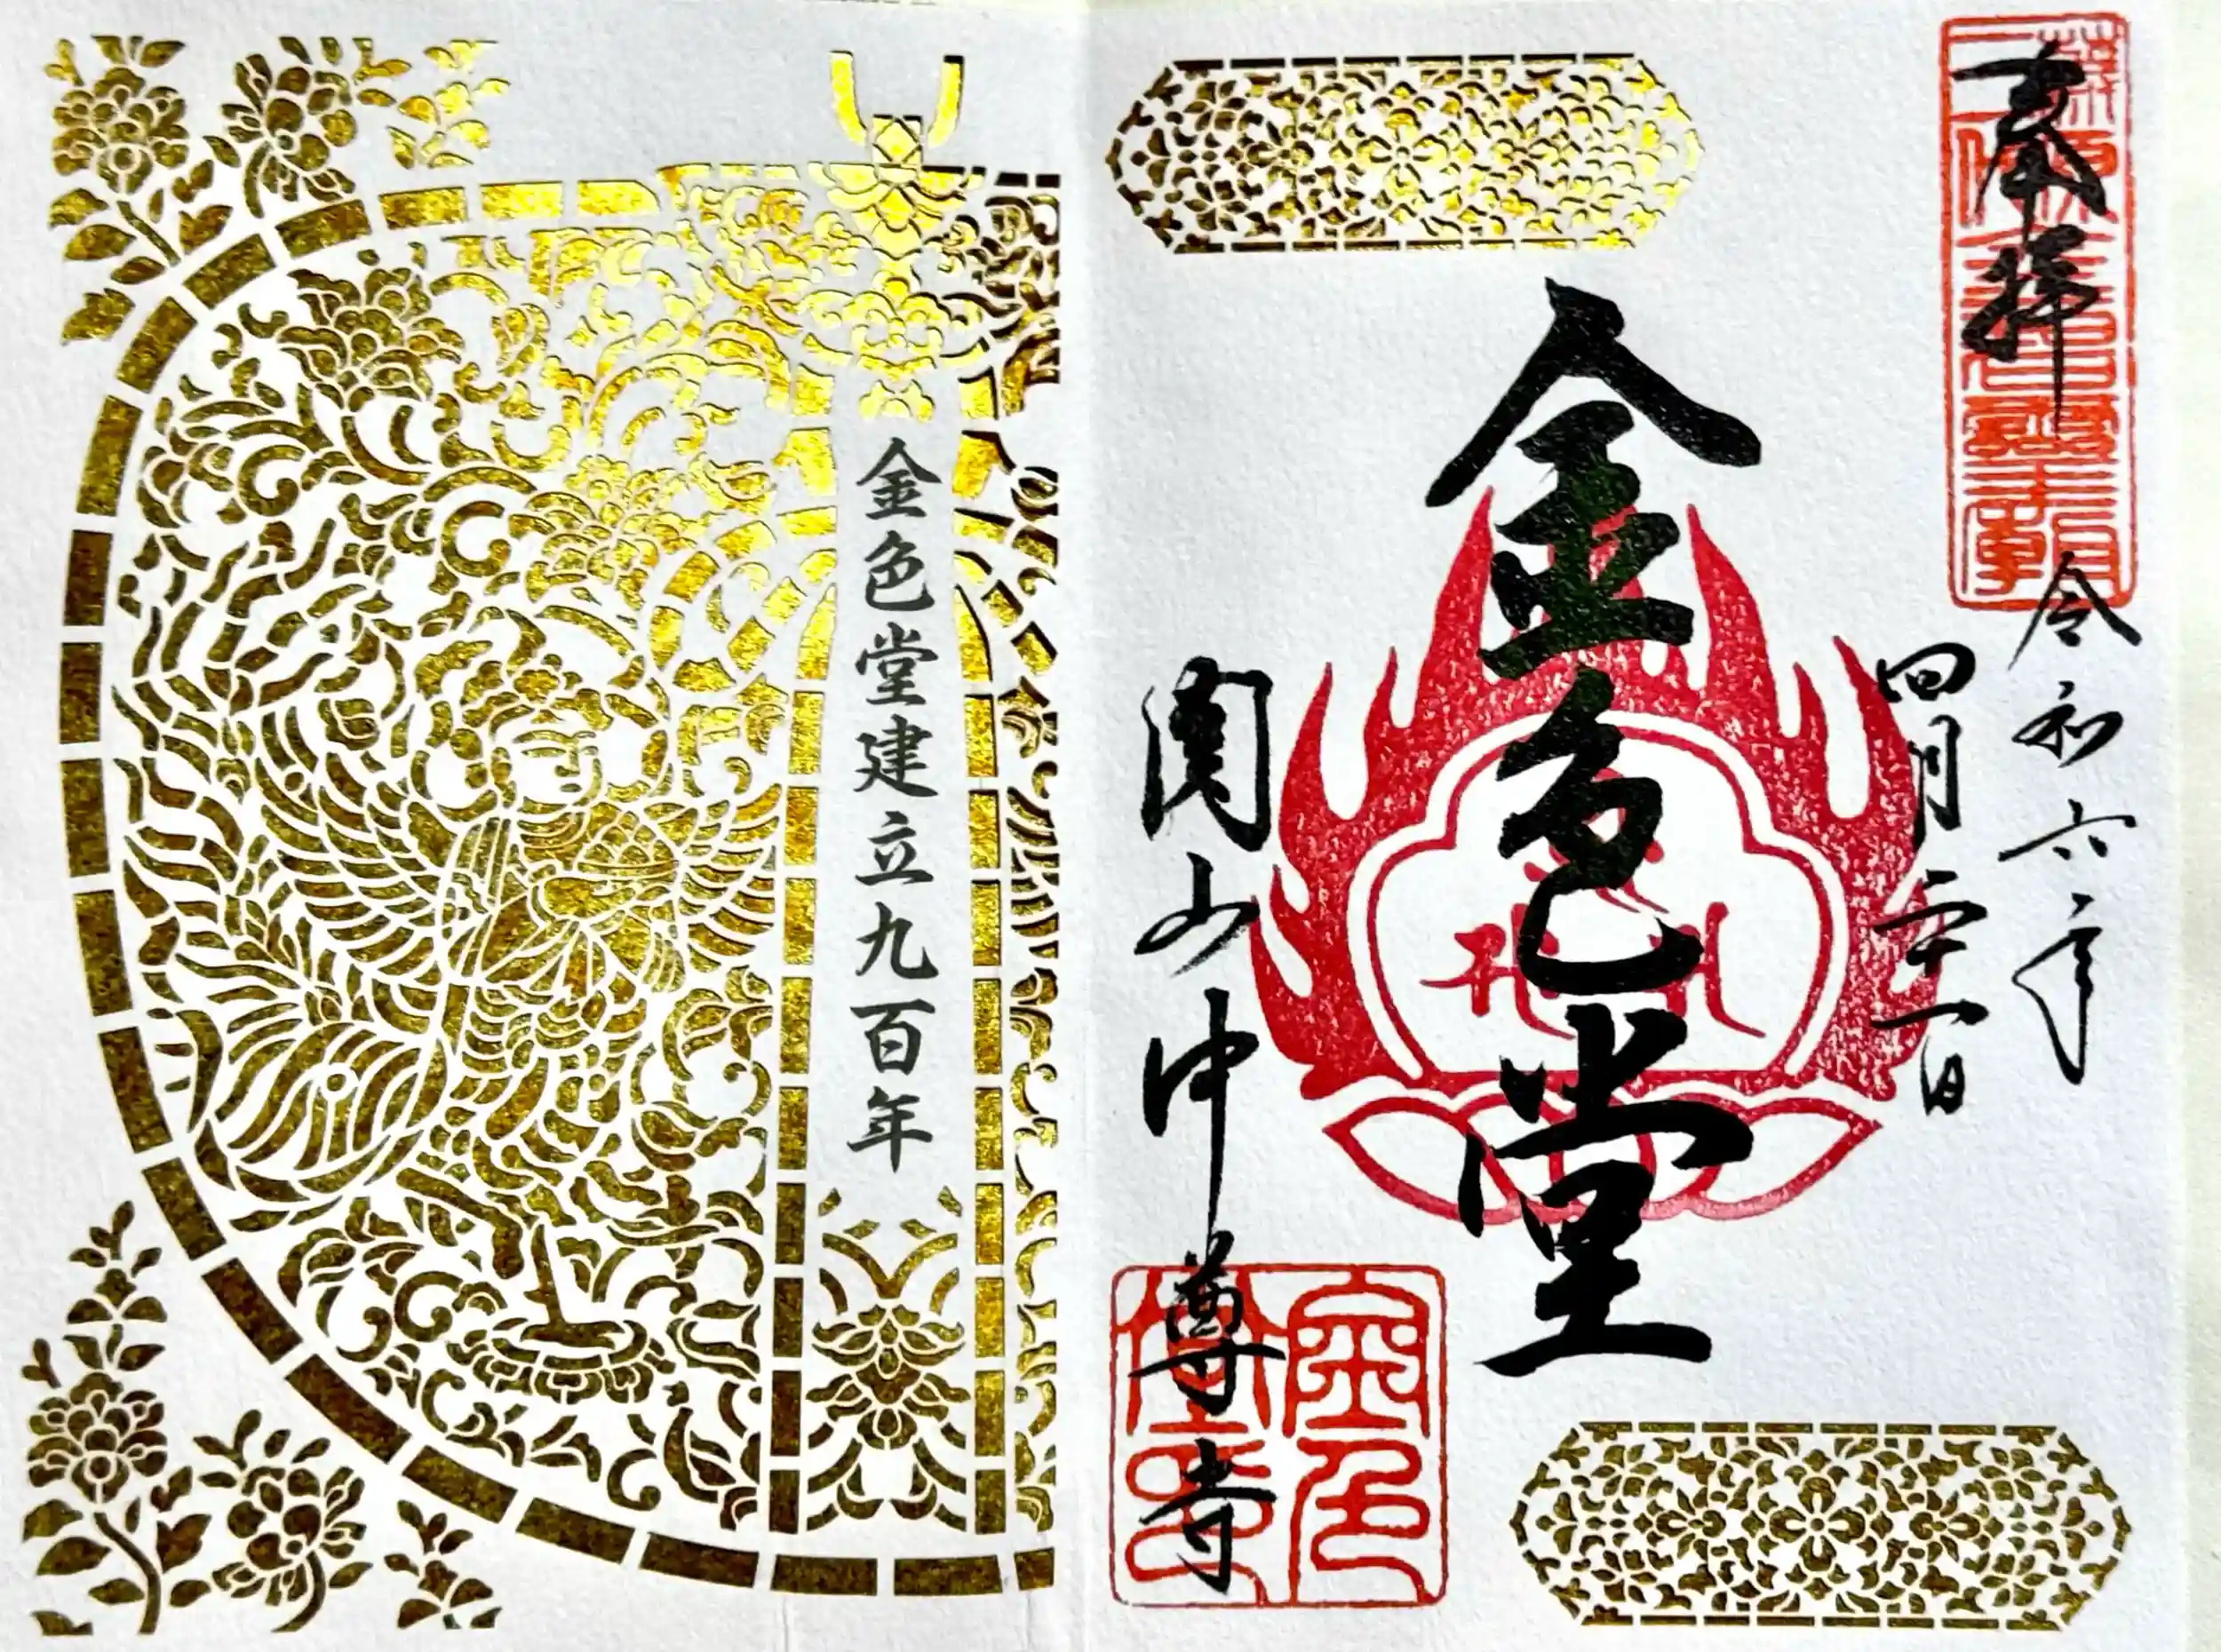 奉拝
令和六年
四月二十一日
金色堂
関山中尊寺
金色堂印
金色堂建立九百年